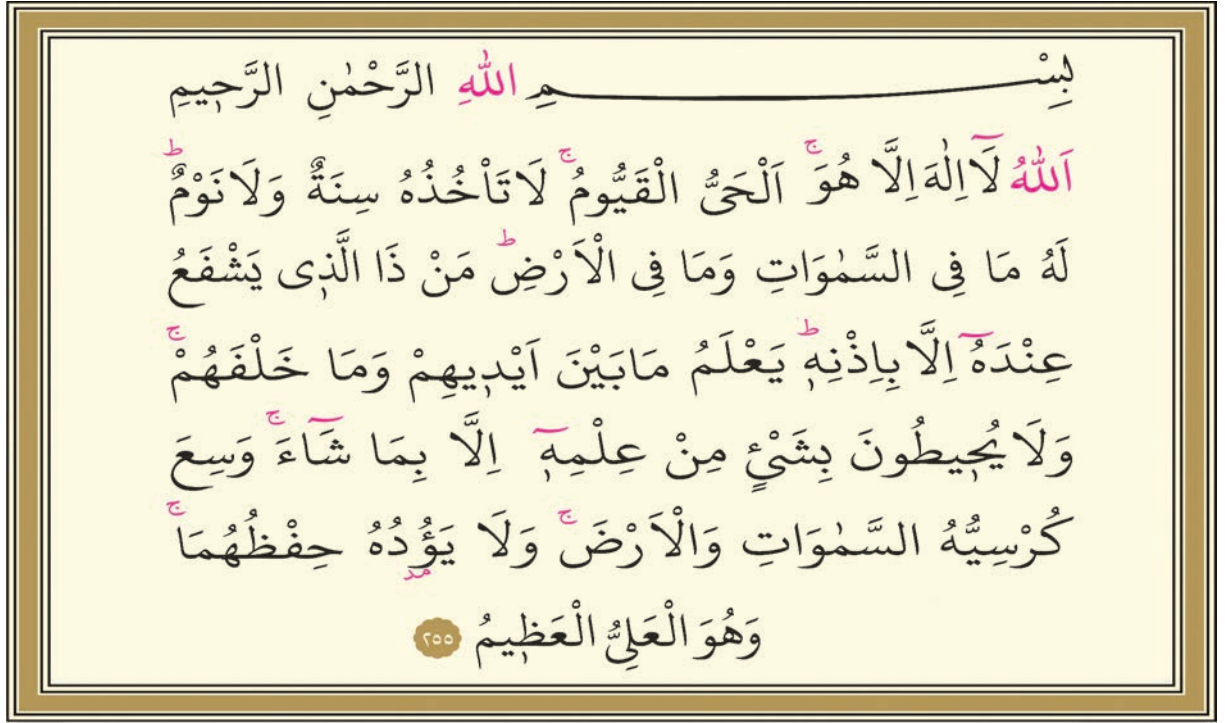 بِسْمِ اللّٰهِ الرَّحْمٰنِ الرَّحٖيمِ
اَللّٰهُ لَٓا اِلٰهَ اِلَّا هُوَۚ اَلْحَىُّ الْقَيُّومُۚ لَا تَاْخُذُهُ سِنَةٌ وَلَا نَوْمٌؕ
لَهُ مَا فِى السَّمٰوَاتِ وَمَا فِى الْاَرْضِؕ مَنْ ذَا الَّذٖى يَشْفَعُ
عِنْدَهُٓ اِلَّا بِاِذْنِهٖؕ يَعْلَمُ مَا بَيْنَ اَيْدٖيهِمْ وَمَا خَلْفَهُمْۚ
وَلَا يُحٖيطُونَ بِشَىْءٍ مِنْ عِلْمِهٖٓ اِلَّا بِمَا شَٓاءَۚ وَسِعَ
كُرْسِيُّهُ السَّمٰوَاتِ وَالْاَرْضَۚ وَلَا يَؤُدُهُ حِفْظُهُمَاۚ
مد
وَهُوَ الْعَلِىُّ الْعَظٖيمُ ٢٥٥